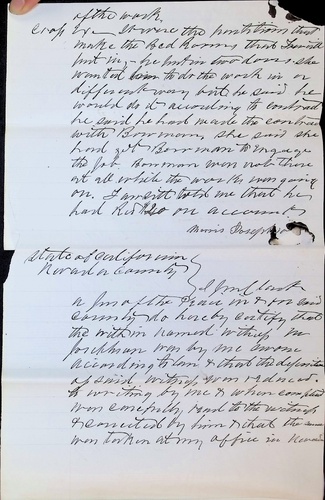 of the work.
Cross Ex - It were the partitions that
make the Bed Rooms that
put in, - he put in two doors she
wanted him to do the work in a
different way but he said he
would do it according to contract
he said he had made the contract
with Bowman, she said she
had got Bowman to engage
the Job. Bowman was not there
at all while the work was going
on. told me that he
had on account
Morris Josephson
State of California
Nevada County
I
a Jus of the Peace in & for said
County do hereby certify that
the within named witness M
Josephson was by me sworn
according to law & that the deposition
of said witness was reduced
to writing by me & when completed
was carefully read to the witness
& corrected by him & that the same
was taken at my office in Nevada